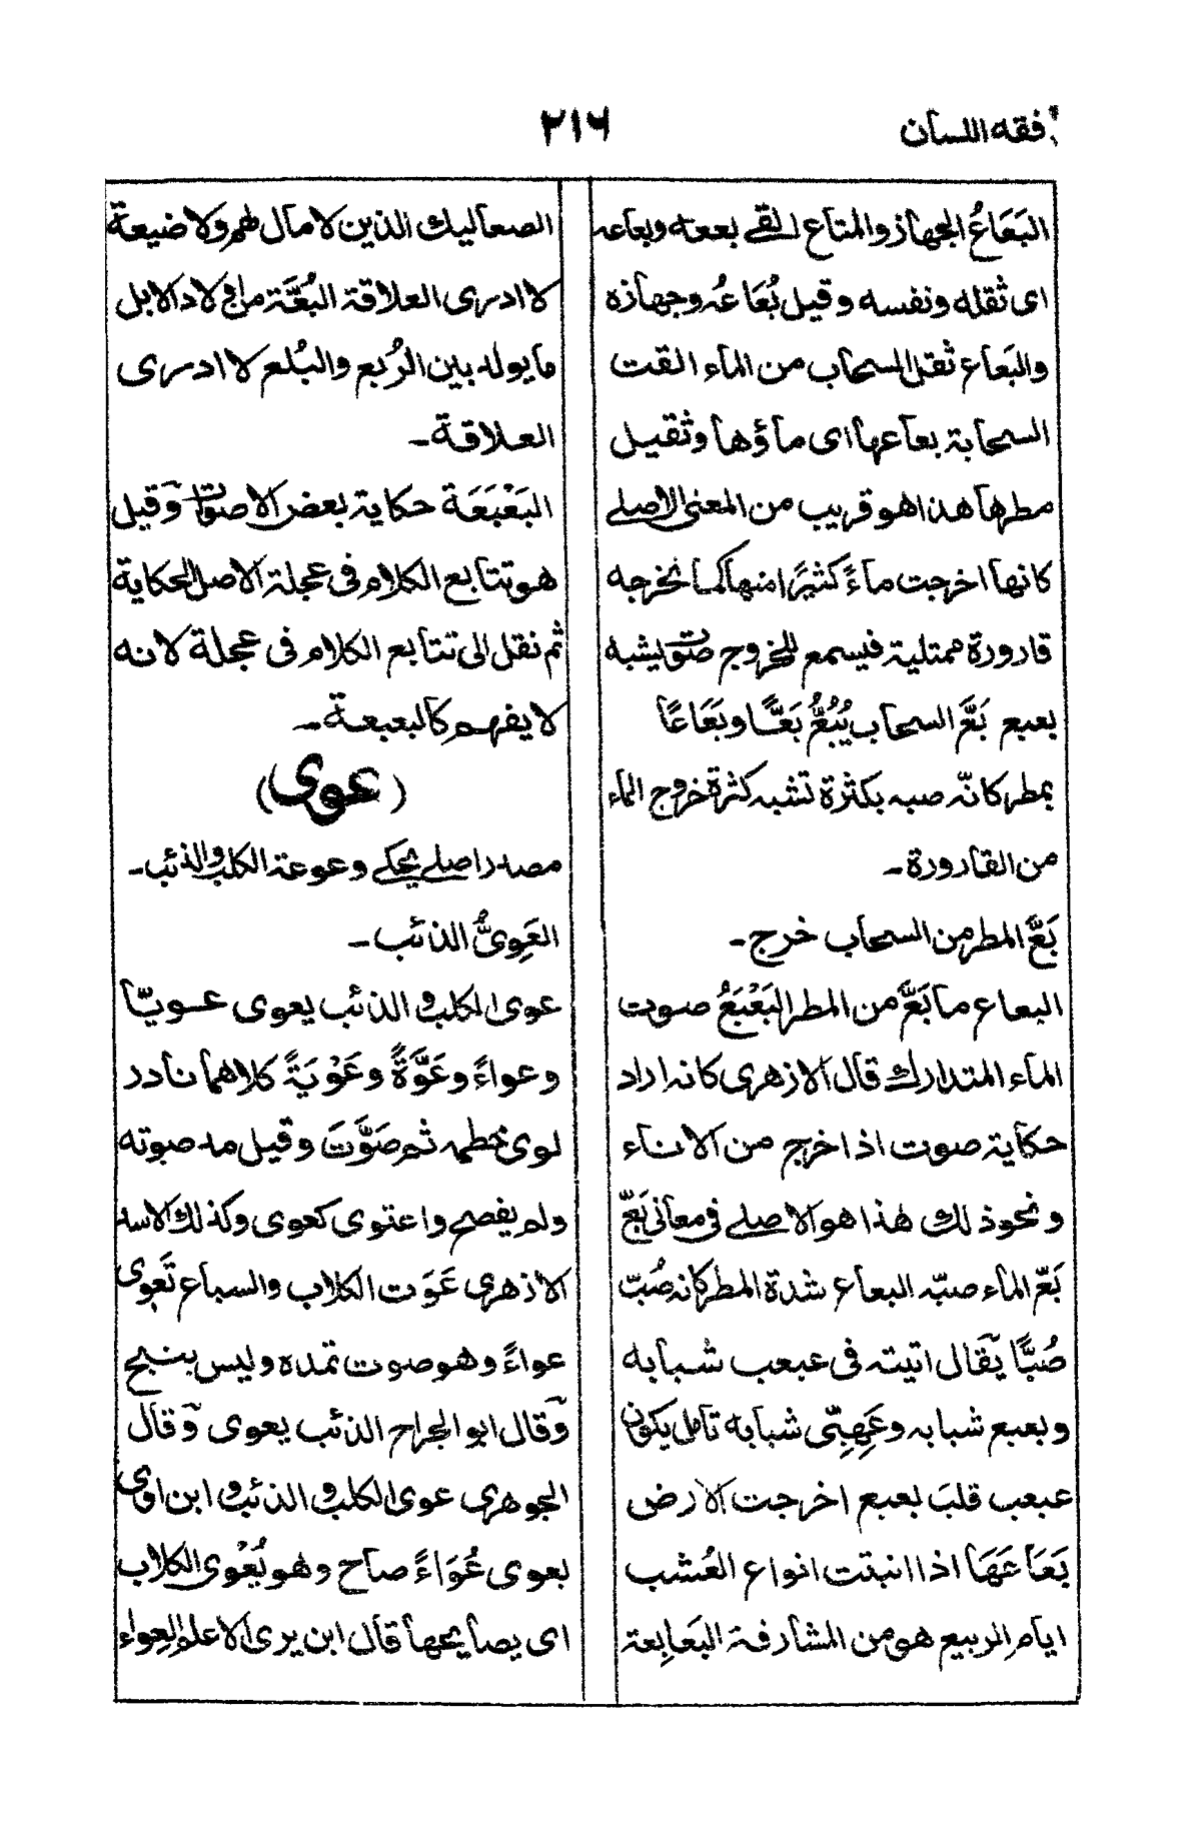 فقه اللسان
٢١٦
البَعَاعُ الجهاز والمتاع القى بععه وبعاعه
اى ثقله ونفسه وقيل بُعَاعُه وجهازه
والبَعاع ثقل السحاب من الماء القت
السحابة بعاعها اى ماؤها وثقيل
مطرها هذا هو قريب من المعنى الاصلے
كانها اخرجت ماءً كثيرًا منها كما تخرجه
قارورة ممتلية فيسمع للخروج صوت يشبه
بعبع بَعَّ السحاب يُبُعُّ بَعًّا وبَعَاعًا
بمطر كانّه صبه بكثرة تشبه كثرة خروج الماء
من القارورة۔
بَعَّ المطر من السحاب خرج۔
البعاع ما بَعَّ من المطر البَعْبَعُ صوت
الماء المتدارك قال الازهرى كانه اراد
حكاية صوت اذا خرج من الاناء
ونحو ذلك هذا هو الاصلے فى معانى بَعّ
بَعّ الماء صبّه البعاع شدة المطر كانه صُبّ
صُبًّا يقال اتيته فى عبعب شبابه
وبعبع شبابه وعَهِبّى شبابه تامل يكون
عبعب قلبَ بعبع اخرجت الارض
بَعَاعَهَا اذا انبتت انواع العُشب
ايام الربيع هو من المشارفة البَعابِعة
الصعاليك الذين لا مال لهم ولا ضيعة
لا ادرى العلاقة البُعَّة من اولاد الابل
ما يولد بين الرُبع والبُلع لا ادرى
العلاقة۔
البَعْبَعَة حكاية بعض الاصوات وقيل
هو تتابع الكلام فى عجلة الاصل الحكاية
ثم نقل الى تتابع الكلام فى عجلة لانه
لا يفهم كالبعبعة۔
(عوى)
مصدر اصلے يحكے وعوعة الكلب والذئب۔
العَوِىُّ الذئب۔
عوى الكلب و الذئب يعوى عويّا
وعواءً وعَوَّةً وعَوْيَةً كلاهما نادر
لوى خطمه ثم صَوَّتَ وقيل مد صوته
ولم يفصح واعتوى كعوى وكذلك الاسد
الازهرى عَوَت الكلاب والسباع تَعوى
عواءً وهو صوت تمده وليس بنبح
وقال ابو الجراح الذئب يعوى وقال
الجوهرى عوى الكلب و الذئب و ابن اوى
يعوى عُوَاءً صاح وهو يُعْوى الكلاب
اى يصايحها قال ابن برى الاعلم العواء